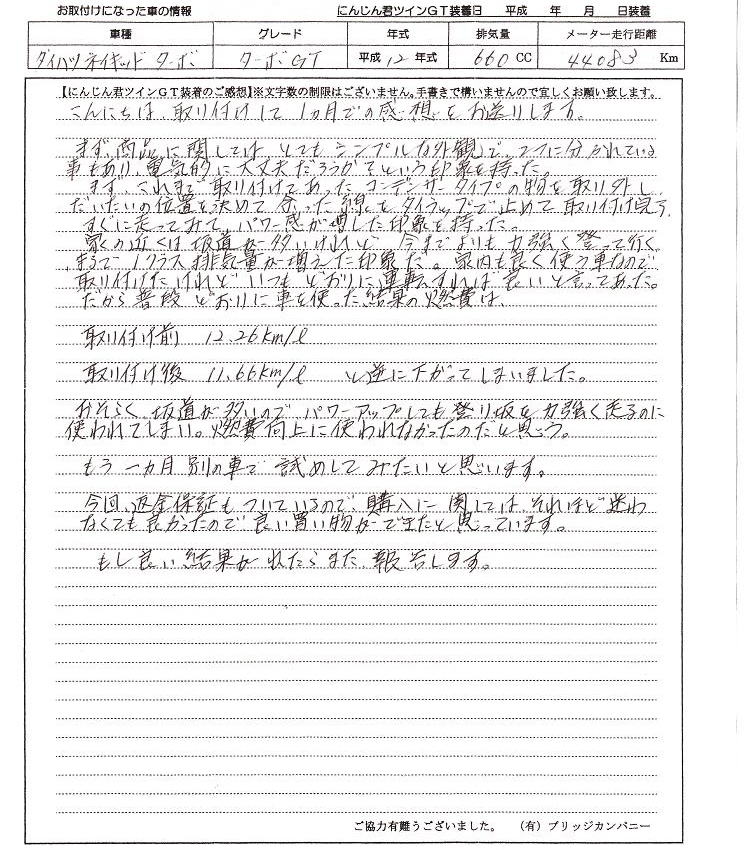 お取付けになった車の情報 にんじん君ツインGT装着日 平成 年 月 日装着
車種 グレード 年式 排気量 メーター走行距離
ダイハツネイキッド ターボ ターボGT 平成12年式 660CC 44083 Km
【にんじん君ツインGT装着のご感想】※文字数の制限はございません。手書きで構いませんので宜しくお願い致します。
こんにちは、取り付けして1カ月での感想をお送りします。
まず、商品に関しては、とてもシンプルな外観で、2つに分かれている
事もあり、電気的に大丈夫だろうかという印象を持った。
まず、これまで取り付けてあったコンデンサータイプの物を取り外し
だいたいの位置を決めて余った線をタイラップで止めて取り付け完了
すぐに走ってみて、パワー感が増した印象を持った。
家の近くは坂道が多いけれど、今までよりも力強く登って行く。
まるで1クラス排気量が増えた印象だ。家内も良く使う車なので
取り付けたけれどいつもどおりに運転すれば良いと言ってあった。
だから普段どおりに車を使った結果の燃費は、
取り付け前 12.26km/l
取り付け後 11.66km/l と逆に下がってしまいました。
おそらく、坂道が多いのでパワーアップしても登り坂を力強く走るのに
使われてしまい。燃費向上に使われなかったのだと思う。
もう一カ月別の車で試めしてみたいと思います。
今回、返金保証もついているので、購入に関しては、それほど迷わ
なくても良かったので良い買い物ができたと思っています。
もし良い結果がでたらまた、報告します。
ご協力有難うございました。 （有）ブリッジカンパニー